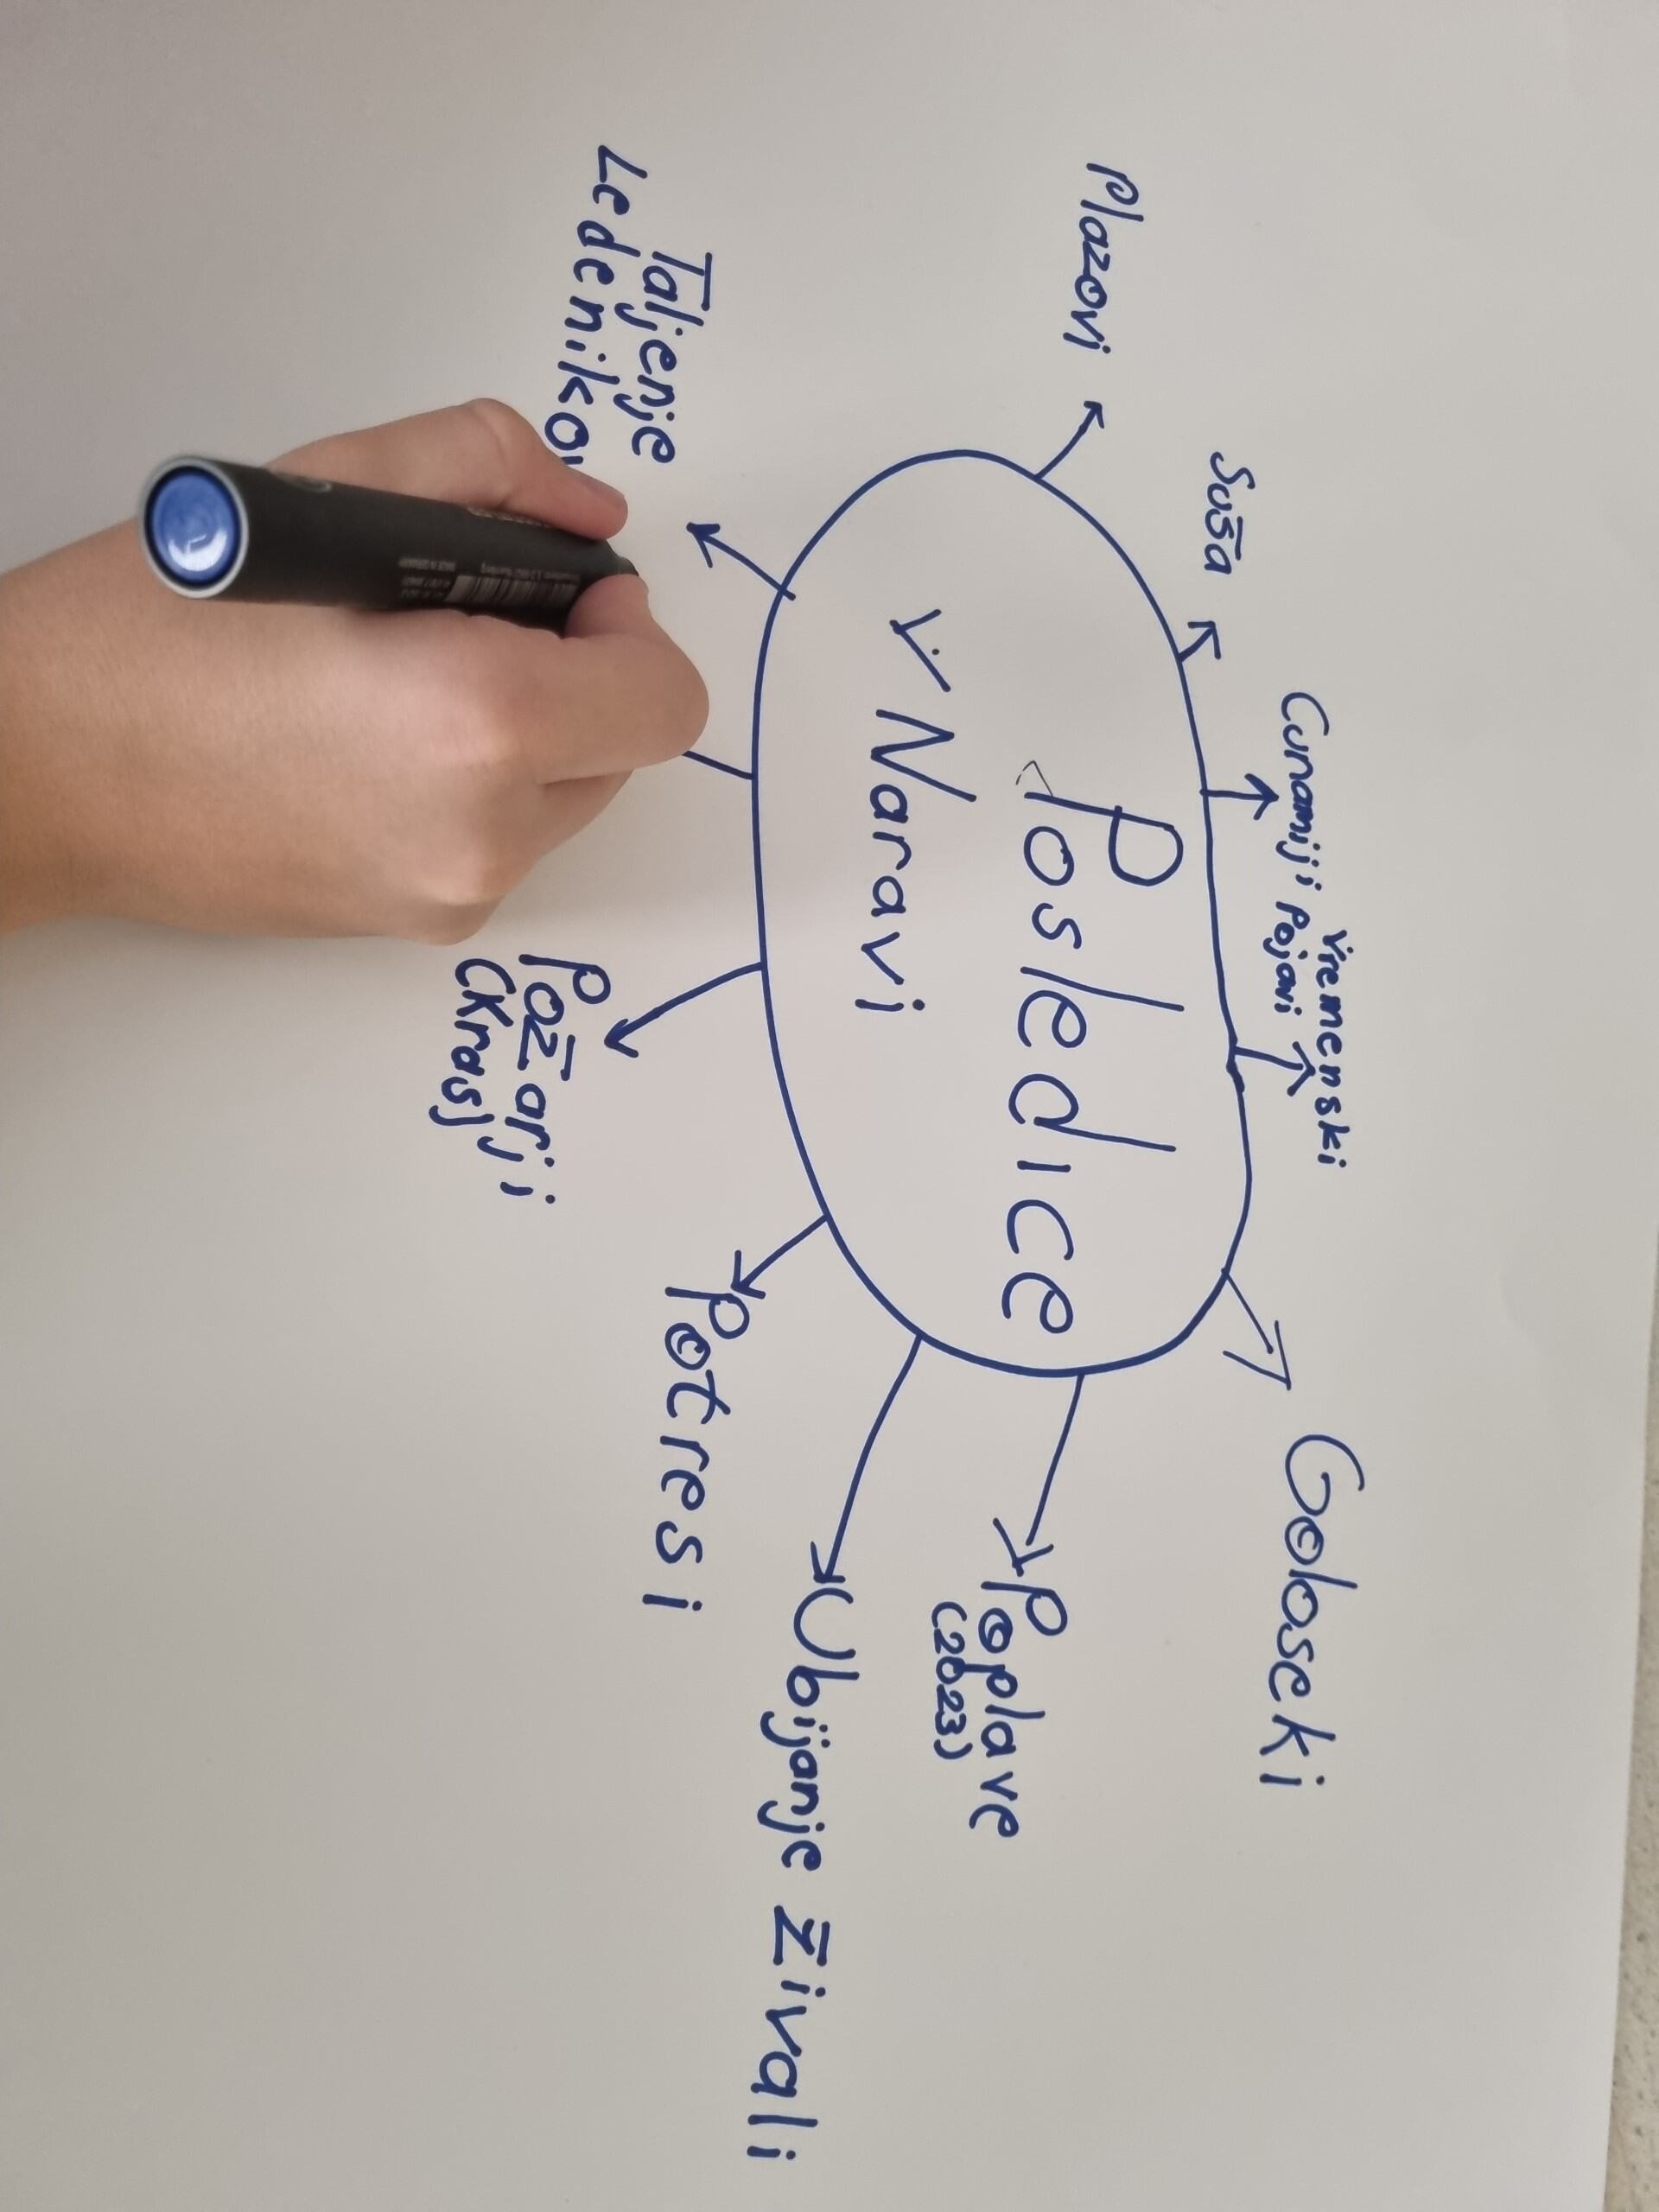 Posledice
v Naravi
Plazovi
Suša
Cunamiji
Vremenski
Pojavi
Goloseki
Poplave
(2023)
Ubijanje Živali
Potresi
Požarji
(Kras)
Taljenje